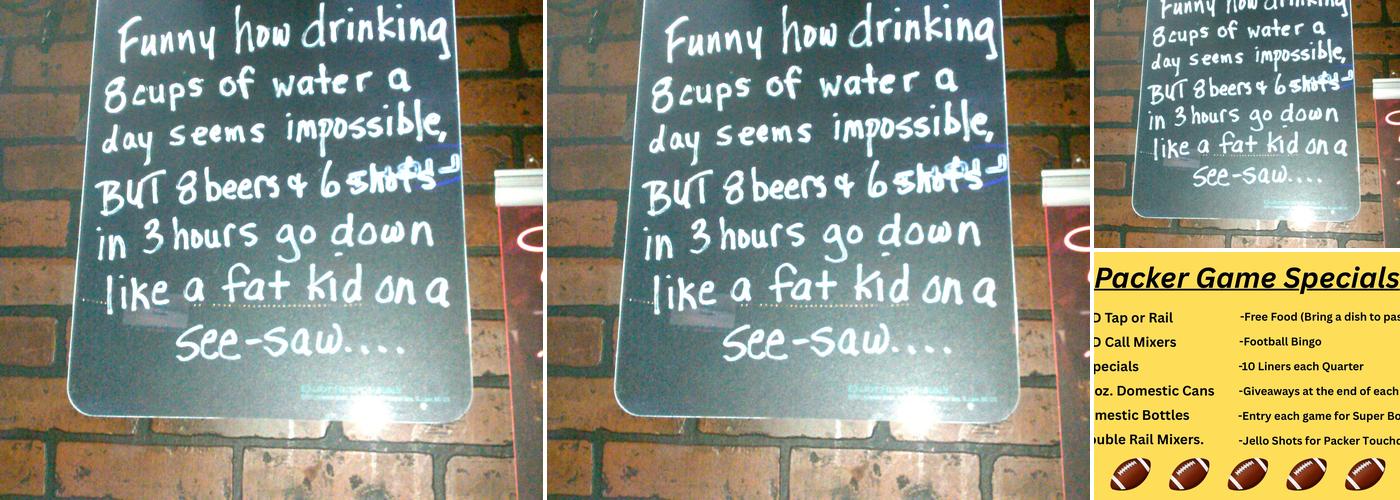 Funny how drinking
8 cups of water a
day seems impossible,
BUT 8 beers & 6 shots
in 3 hours go down
like a fat kid on a
see-saw....
Funny how drinking
8 cups of water a
day seems impossible,
BUT 8 beers & 6 shots
in 3 hours go down
like a fat kid on a
see-saw....
Funny how drinking
8 cups of water a
day seems impossible,
BUT 8 beers & 6 shots
in 3 hours go down
like a fat kid on a
see-saw....
Packer Game Specials
D Tap or Rail
D Call Mixers
pecials
oz. Domestic Cans
mestic Bottles
uble Rail Mixers.
-Free Food (Bring a dish to pas
-Football Bingo
-10 Liners each Quarter
-Giveaways at the end of each
-Entry each game for Super Bo
-Jello Shots for Packer Touchd